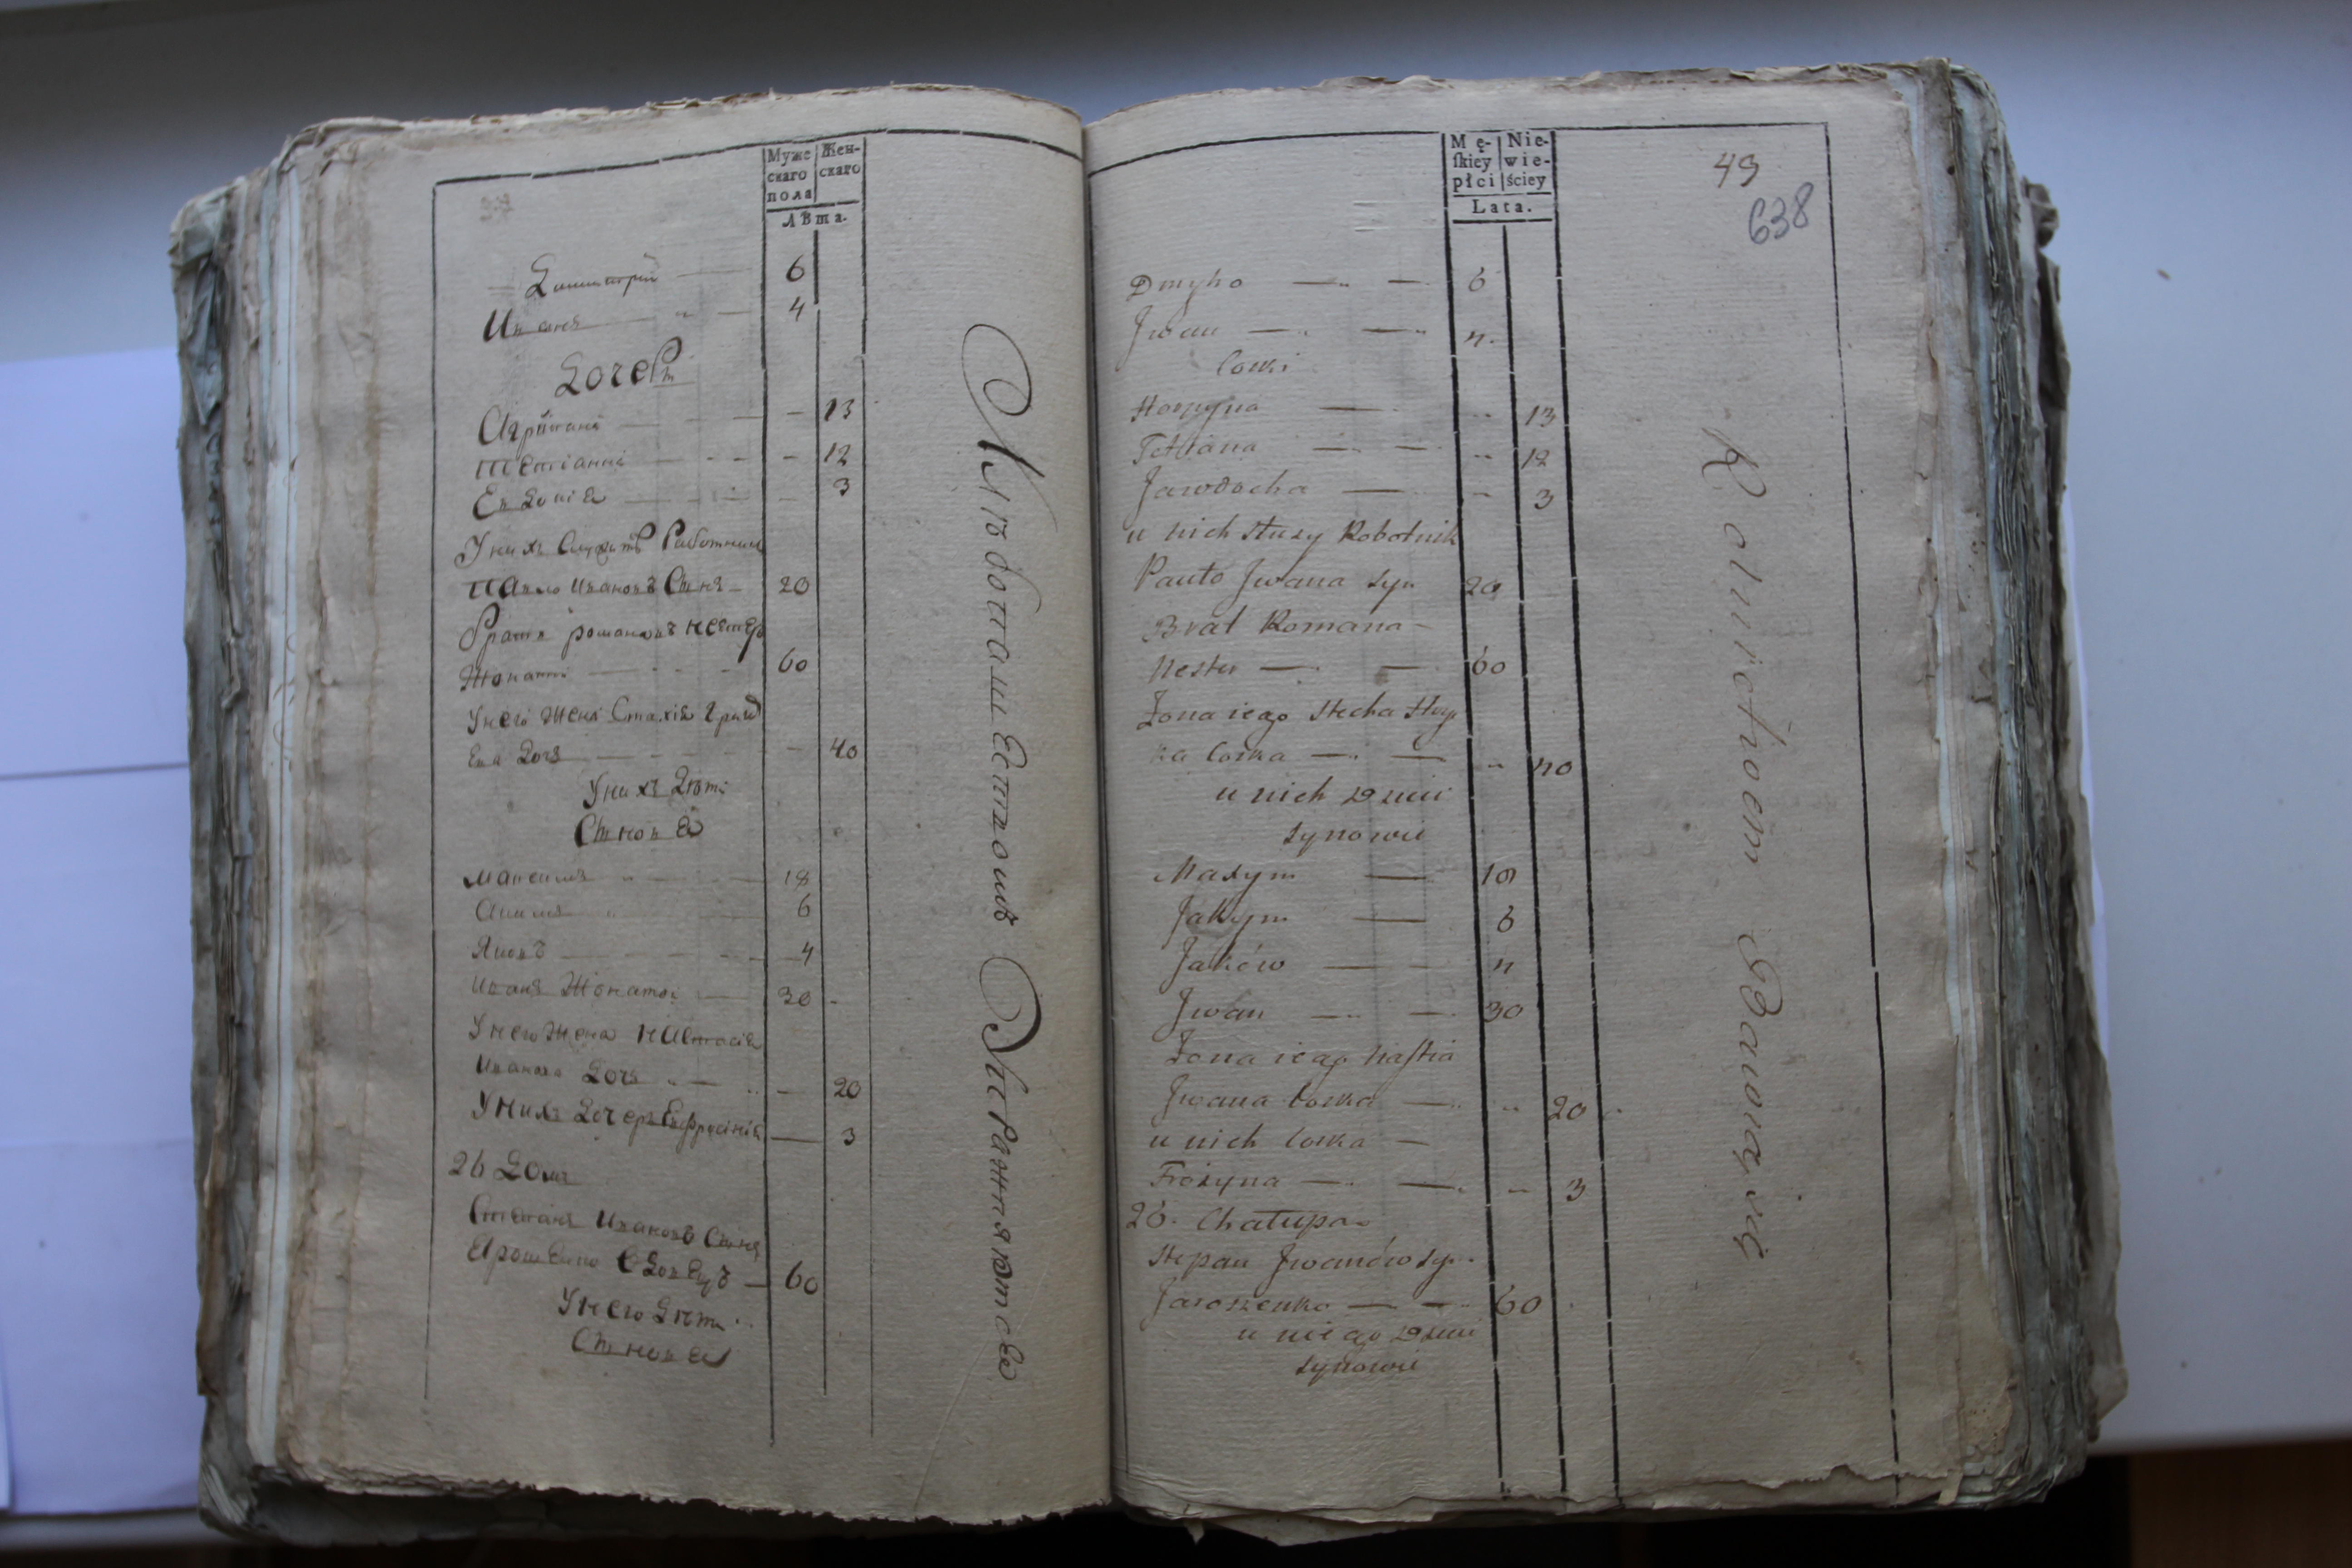 Муже скаго пола
Жен- скаго
Лѣта.
Димитрій — 6
Иванъ — 4
Дочери
Агрипина — 13
Тетіанна — 12
Евдокія — 3
У нихъ Служитъ Работникъ
Павло Ивановъ Сынъ — 20
Братъ романовъ нестеръ
Жонатъ — 60
У него Жена Стахія Григ
Ева Дочь — 40
У нихъ Дѣти
Сыновья
Максимъ — 18
Акимъ — 6
Яковъ — 4
Иванъ Жонатъ — 30
У него Жена настасія
Иванова Дочь — 20
У нихъ Дочерь Евфросинія — 3
26 Домъ
Степанъ Ивановъ Сынъ
Ярошенко вдовецъ — 60
У него дѣти
Сыновья
Хлѣбопашествомъ Упражняются
Mę- ſkiey płci
Nie- wie- ściey
Lata.
49
638
Dmyho — 6
Jwan — 4
Corki
Horpyna — 13
Tetiana — 12
Jawdocha — 3
u nich służy Robotnik
Pawło Jwana syn 20
Brat Romana
Nester — 60
Żona iego Stecha Hry
ka Corka — 40
u nich Dzieci
synowie
Maxym — 18
Jakym — 6
Jaków — 4
Jwan — 30
Żona iego Naſtia
Jwana Corka — 20
u nich Corka —
Frożyna — 3
26. Chałupa
Stepan Jwanów sy.
Jaroszenko — 60
u niego Dzieci
synowie
Rolnictwem Bawią się